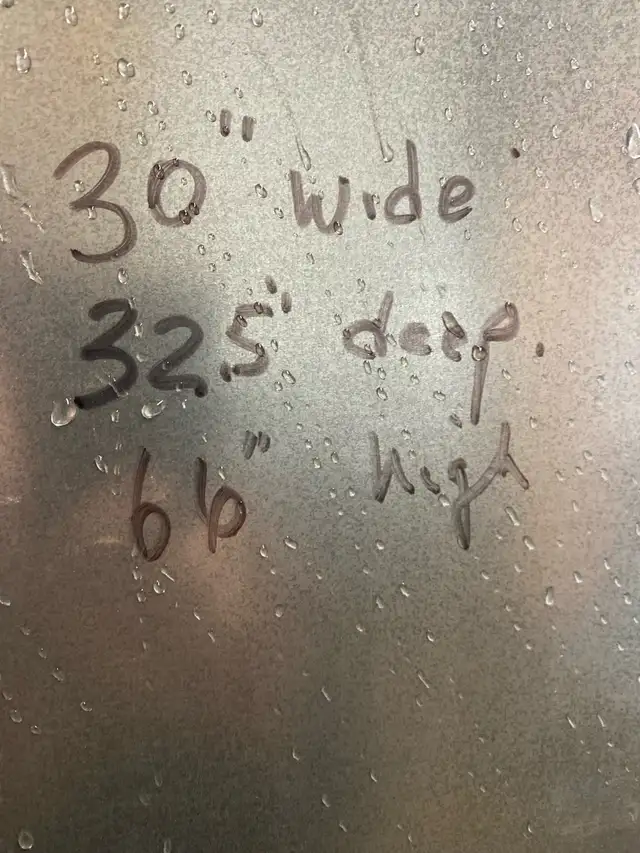 30" wide
32.5" deep
66" high